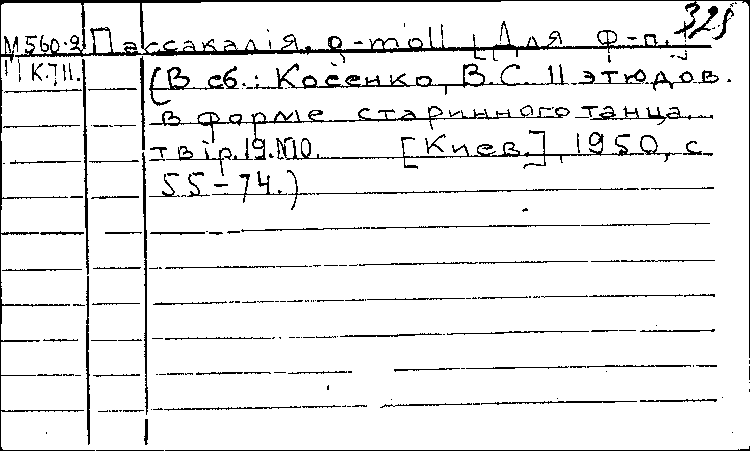 325
М560.2 Пассакалія, g-moll [Для ф-п.]
К.711. (В сб.: Косенко, В.С. 11 этюдов.
в форме старинного танца.
твір.19.№10. [Киев.], 1950, с
55-74.)